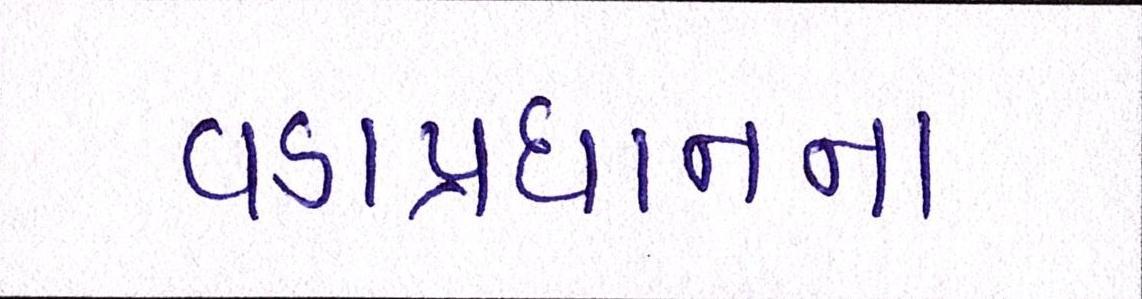 વડાપ્રધાનના